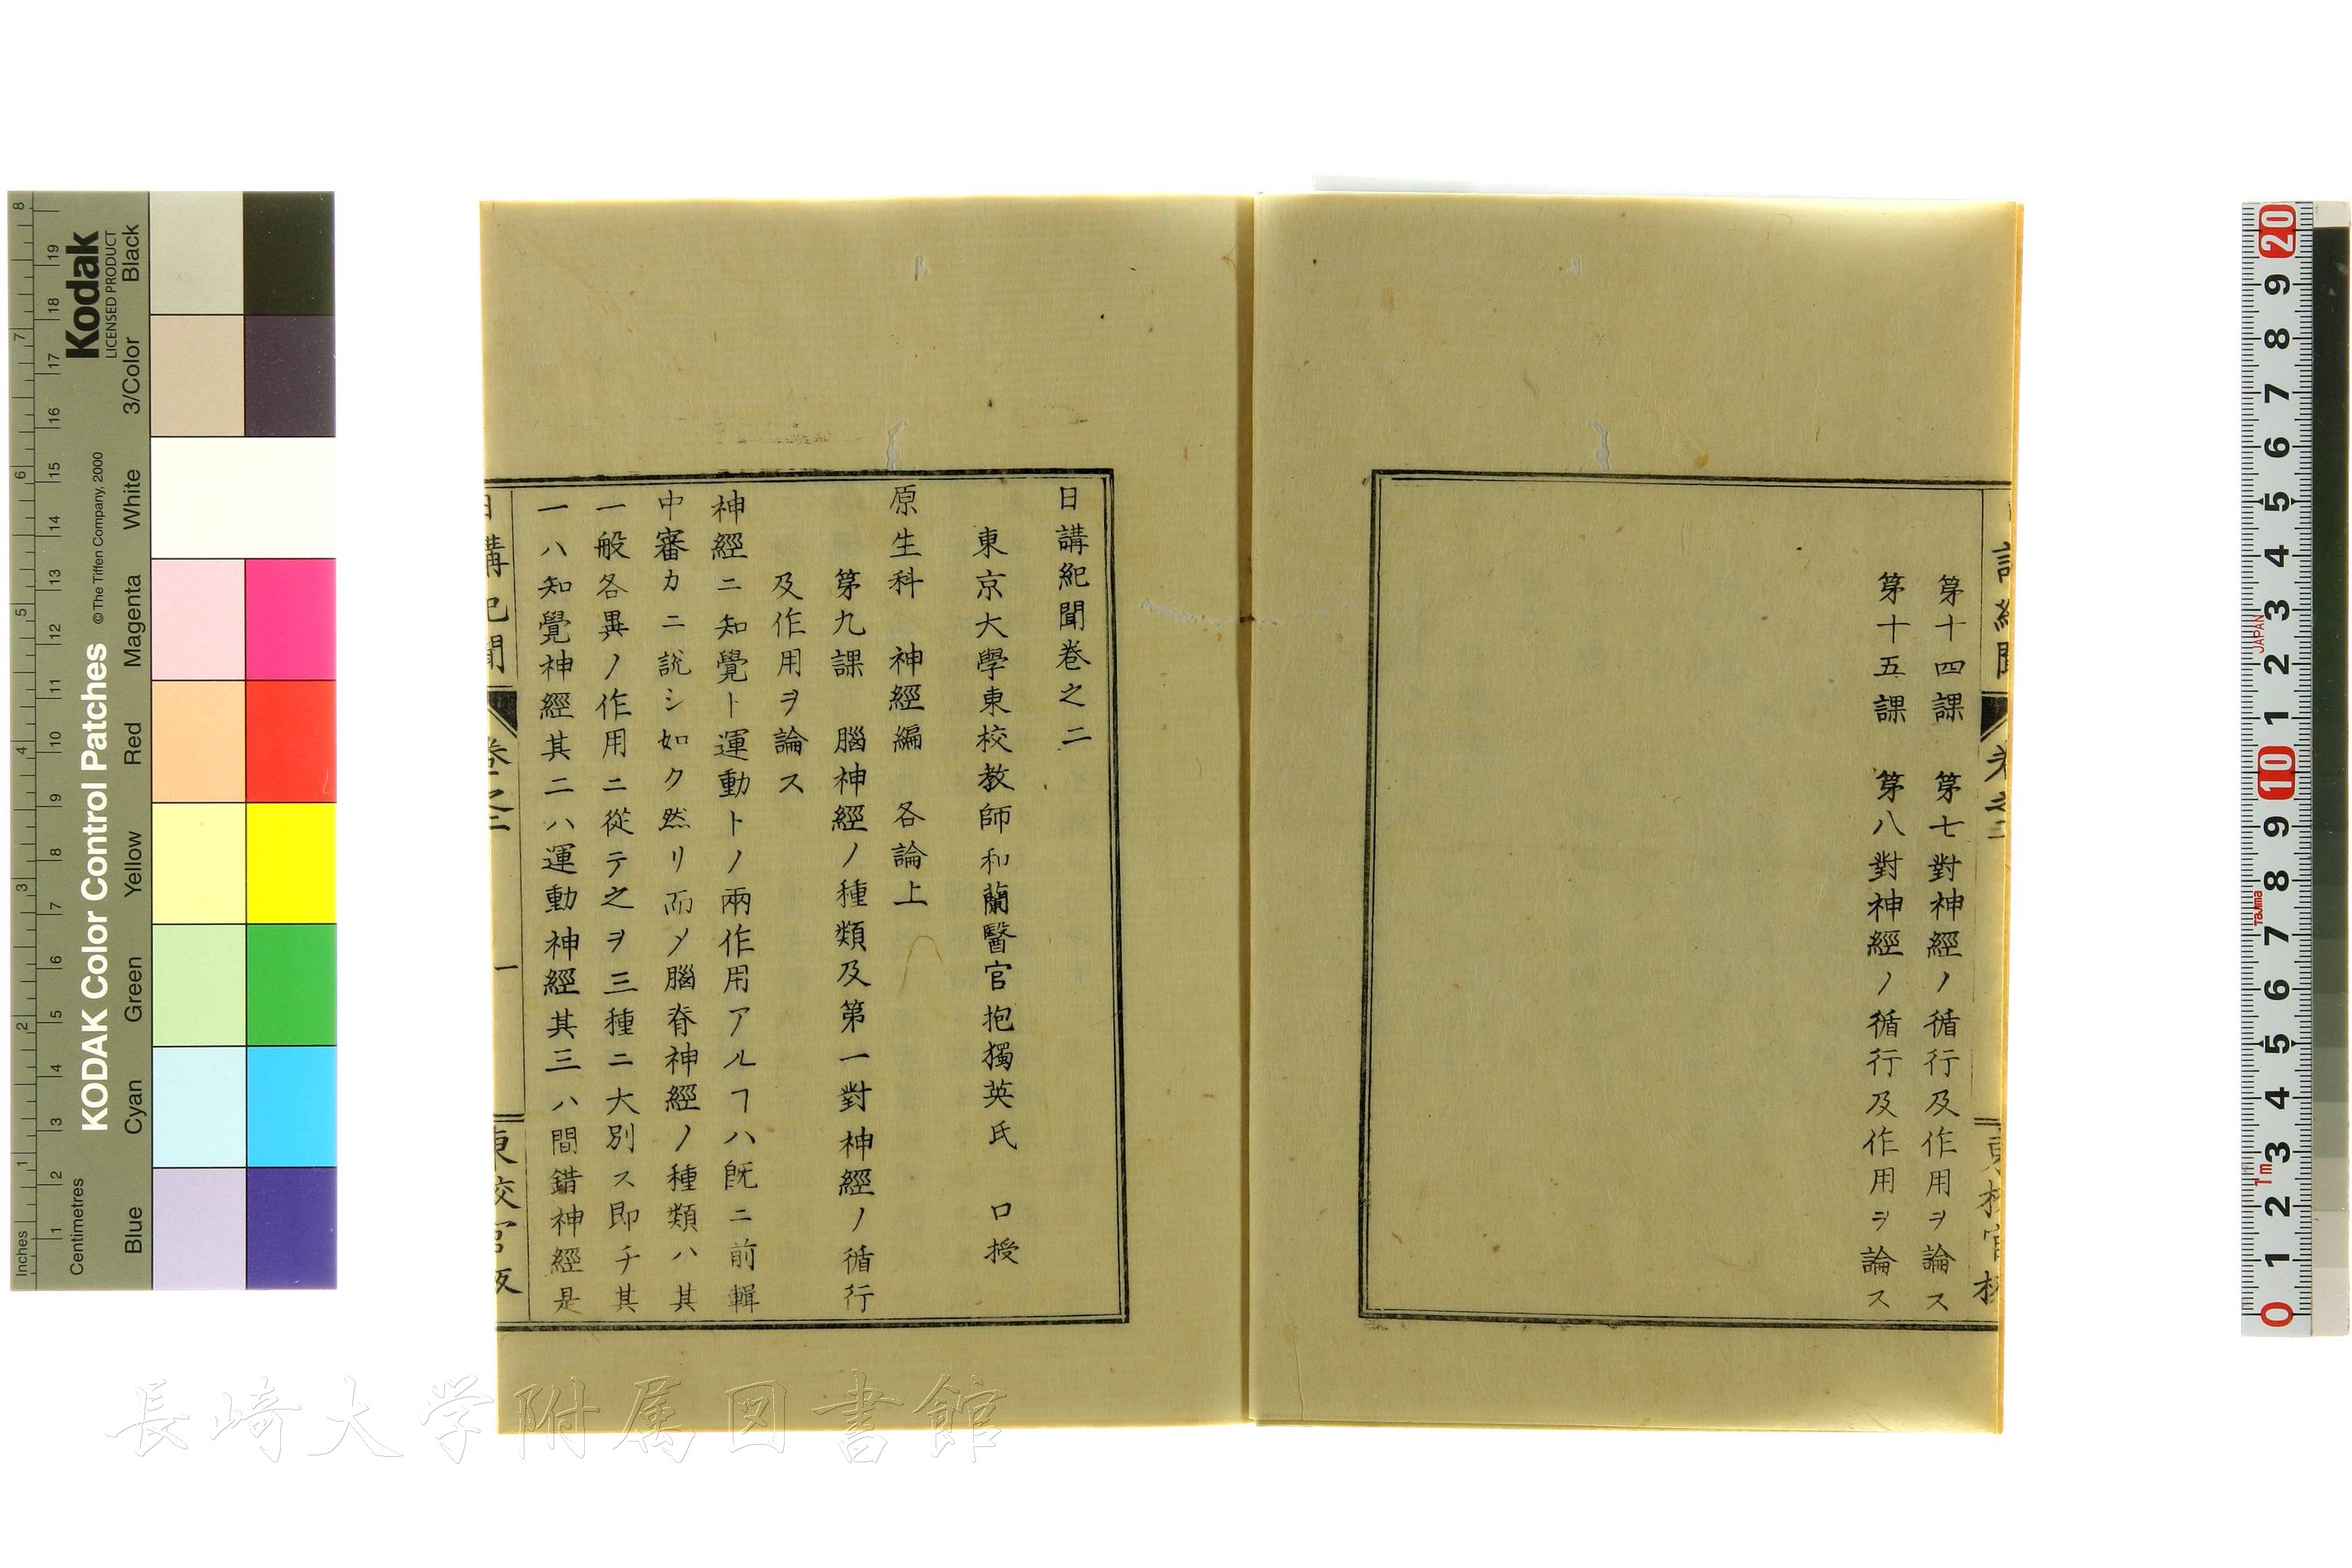 第十四課　第七對神經ノ循行及作用ヲ論ス
第十五課　第八對神經ノ循行及作用ヲ論ス
日講紀聞卷之二
東京大學東校教師和蘭醫官抱獨英氏　口授
原生科　神經編　各論上
第九課　腦神經ノ種類及第一對神經ノ循行
及作用ヲ論ス
神經ニ知覺ト運動トノ兩作用アルヿハ旣ニ前輯
中審カニ說シ如ク然リ而〆腦脊神經ノ種類ハ其
一般各異ノ作用ニ從テ之ヲ三種ニ大別ス即チ其
一ハ知覺神經其二ハ運動神經其三ハ間錯神經是
日講紀聞　卷之二　一　東校官版
長崎大学附属図書館
KODAK Color Control Patches
© The Tiffen Company, 2000
Kodak
LICENSED PRODUCT
Inches
Centimetres
Blue Cyan Green Yellow Red Magenta White 3/Color Black
1 2 3 4 5 6 7 8
1 2 3 4 5 6 7 8 9 10 11 12 13 14 15 16 17 18 19
0 1 2 3 4 5 6 7 8 9 10 1 2 3 4 5 6 7 8 9 20
1m
Tajima
JAPAN